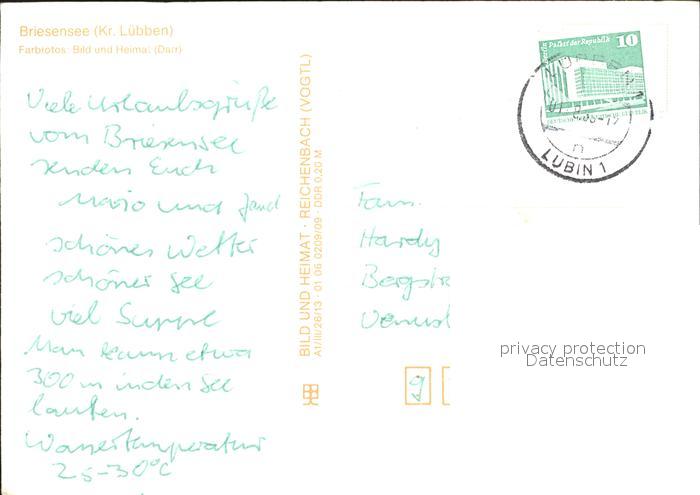 Briesensee (Kr. Lübben)
Farbfotos: Bild und Heimat (Darr)
Viele Urlaubsgrüße
vom Briesensee
senden Euch
Mario und
schönes Wetter
schöner See
viel Suppe
Man kann etwa
300 m in den See
laufen.
Wassertemperatur
25-30°C
BILD UND HEIMAT · REICHENBACH (VOGTL)
A1/III/26/13 · 01 06 0209/09 · DDR 0,20 M
Berlin Palast der Republik 10
LÜBBEN 1
LUBIN 1
Fam.
Hardy
Bergstr
9
privacy protection
Datenschutz